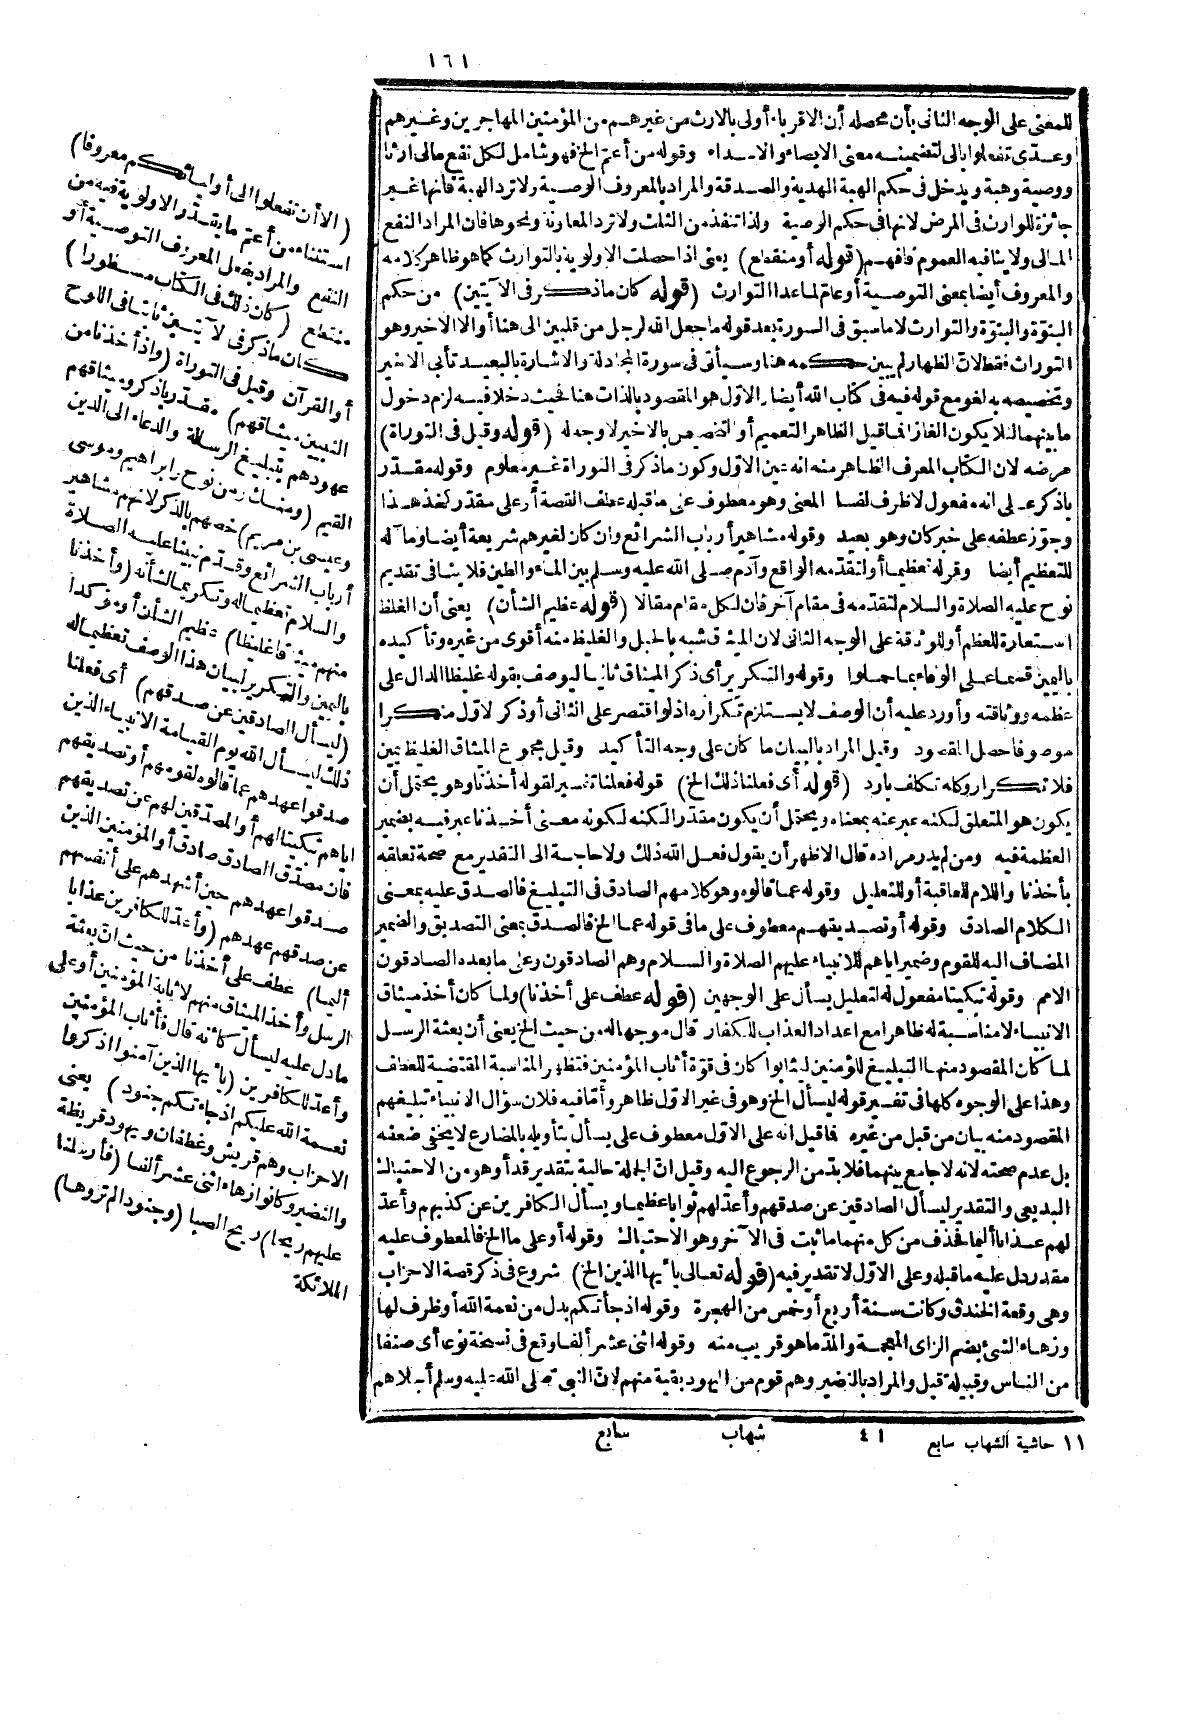 ١٦١
للمعنى على الوجه الثانى بأن محصله أن الاقرباء أولى بالارث من غيرهم من المؤمنين المهاجرين وغيرهم
وعدى تفعلوا بالى لتضمينه معنى الايصاء والاسداء وقوله من أعتم الخ فهو شامل لكل نفع مالى ارثا
ووصية وهبة ويدخل فى حكم الهبة الهدية والصدقة والمراد بالمعروف الوصية ولا ترد الهبة فانها غير
جائزة للوارث فى المرض لانها فى حكم الوصية ولذا تنفذ من الثلث ولا ترد المعاونة ونحوها فان المراد النفع
المالى ولا ينافيه العموم فافهم (قوله أو منقطع) يعنى اذا حصلت الاولوية بالتوارث كما هو ظاهر كلامه
والمعروف أيضا بمعنى التوصية أو عام لما عدا التوارث (قوله كان ماذكر فى الآيتين) من حكم
البنوّة والنبوّة والتوارث لا ما سبق فى السورة بعد قوله ما جعل الله لرجل من قلبين الى هنا أو الا الاخير وهو
التوراث فقط لان الظهار لم يبين حكمه هنا وسيأتى فى سورة المجادلة والاشارة بالبعيد تأبى الاخير
وتخصيصه به لغو مع قوله فيه فى كتاب الله أيضا الاوّل هو المقصود بالذات هنا فحيث دخلا فيه لزم دخول
ما بينهما لئلا يكون الغازا فما قيل الظاهر التعميم أو التخصيص بالاخير لا وجه له (قوله وقيل فى التوراة)
مرضه لان الكتاب المعرف الظاهر منه انه عين الاوّل وكون ماذكر فى التوراة غير معلوم وقوله مقدر
باذكر على انه مفعول لا ظرف لفسا المعنى وهو معطوف على ما قبله عطف القصة أو على مقدر كخذ هذا
وجوّز عطفه على خبر كان وهو بعيد وقوله مشاهير أرباب الشرائع وان كان لغيرهم شريعة أيضا وما آله
للتعظيم أيضا وقوله تعظيما أو لتقدّمه الواقع وآدم صلى الله عليه وسلم بين الماء والطين فلا ينافى تقديم
نوح عليه الصلاة والسلام لتقدّمه فى مقام آخر فان لكل مقام مقالا (قوله عظيم الشأن) يعنى أن الغلظ
استعارة للعظم أو للوثاقة على الوجه الثانى لان الميثاق شبه بالحبل والغليظ منه أقوى من غيره وتأكيده
باليمين قسما على الوفاء بما حملوا وقوله والتكرير أى ذكر الميثاق ثانيا ليوصف بقوله غليظا الدال على
عظمه ووثاقته وأورد عليه أن الوصف لا يستلزم تكراره اذ لو اقتصر على الثانى أو ذكر لاوّل منكرا
موصوفا حصل المقصود وقيل المراد بالبيان ما كان على وجه التأكيد وقيل مجموع الميثاق الغليظ يمين
فلا تكرار وكله تكلف بارد (قوله أى فعلنا ذلك الخ) قوله فعلنا تفسير لقوله أخذنا وهو يحتمل أن
يكون هو المتعلق لكنه عبر عنه بمعناه ويحتمل أن يكون مقدّرا لكنه لكونه معنى أخذنا عبر فيه بضمير
العظمة فيه ومن لم يدر مراده قال الاظهر أن يقول فعل الله ذلك ولا حاجة الى التقدير مع صحة تعلقه
بأخذنا واللام للعاقبة أو للتعليل وقوله عما قالوه وهو كلامهم الصادق فى التبليغ فالصدق عليه بمعنى
الكلام الصادق وقوله أو تصديقهم معطوف على ما فى قوله عما الخ فالصدق بمعنى التصديق والضمير
المضاف اليه للقوم وضمير اياهم للانبياء عليهم الصلاة والسلام وهم الصادقون وعلى ما بعده الصادقون
الامم وقوله تبكيتا مفعول له لتعليل يسأل على الوجهين (قوله عطف على أخذنا) ولما كان أخذ ميثاق
الانبياء لا مناسبة له ظاهرا مع اعداد العذاب للكفار قال موجها له من حيث الخ يعنى أن بعثة الرسل
لما كان المقصود منها التبليغ للمؤمنين ليثابوا كان فى قوّة أثاب المؤمنين فتظهر المناسبة المقتضية للعطف
وهذا على الوجوه كلها فى تفسير قوله ليسأل الخ وهو فى غير الاوّل ظاهر وأما فيه فلان سؤال الانبياء تبليغهم
المقصود منه بيان من قبل من غيره فما قيل انه على الاوّل معطوف على يسأل بتأويله بالمضارع لا يخفى ضعفه
بل عدم صحته لانه لا جامع بينهما فلا بدّ من الرجوع اليه وقيل انّ الجملة حالية بتقدير قد أو هو من الاحتباك
البديعى والتقدير ليسأل الصادقين عن صدقهم وأعدّ لهم ثوابا عظيما ويسأل الكافرين عن كذبهم وأعدّ
لهم عذابا أليما فحذف من كل منهما ما ثبت فى الآخر وهو الاحتباك وقوله أو على ما الخ فالمعطوف عليه
مقدر دل عليه ما قبله وعلى الاوّل لا تقدير فيه (قوله تعالى يأيها الذين الخ) شروع فى ذكر قصة الاحزاب
وهى وقعة الخندق وكانت سنة أربع أو خمس من الهجرة وقوله اذ جاءتكم بدل من نعمة الله أو ظرف لها
وزهاء الشئ بضم الزاى المعجمة والمدّ ما هو قريب منه وقوله اثنى عشر ألفا وقع فى نسخة نوعا أى صنفا
من الناس وقبيلة قيل والمراد بالنضير وهم قوم من اليهود بقية منهم لانّ النبى صلى الله عليه وسلم أجلاهم
(الا أن تفعلوا الى أوليائكم معروفا)
استثناء من أعتم ما يقدّر الاولوية فيه من
النفع والمراد بفعل المعروف التوصية أو
منقطع (كان ذلك فى الكتاب مسطورا)
كان ماذكر فى الآيتين ثابتا فى اللوح
أو القرآن وقيل فى التوراة (واذ أخذنا من
النبيين ميثاقهم) مقدّر باذكر وميثاقهم
عهودهم بتبليغ الرسالة والدعاء الى الدين
القيم (ومنك ومن نوح وابراهيم وموسى
وعيسى بن مريم) خصهم بالذكر لانهم مشاهير
أرباب الشرائع وقدّم نبينا عليه الصلاة
والسلام تعظيما له وتكريما لشأنه (وأخذنا
منهم ميثاقا غليظا) عظيم الشأن أو مؤكدا
باليمين والتكرير لبيان هذا الوصف تعظيما له
(ليسأل الصادقين عن صدقهم) أى فعلنا
ذلك ليسأل الله يوم القيامة الانبياء الذين
صدقوا عهدهم عما قالوه لقومهم أو تصديقهم
اياهم تبكيتا لهم أو المصدّقين لهم عن تصديقهم
فان مصدّق الصادق صادق أو المؤمنين الذين
صدقوا عهدهم حين أشهدهم على أنفسهم
عن صدقهم عهدهم (وأعدّ للكافرين عذابا
أليما) عطف على أخذنا من حيث ان بعثة
الرسل وأخذ الميثاق منهم لاثابة المؤمنين أو على
ما دل عليه ليسأل كأنه قال فأثاب المؤمنين
وأعدّ للكافرين (يأيها الذين آمنوا اذكروا
نعمة الله عليكم اذ جاءتكم جنود) يعنى
الاحزاب وهم قريش وغطفان ويهود قريظة
والنضير وكانوا زهاء اثنى عشر ألفا (فأرسلنا
عليهم ريحا) ريح الصبا (وجنودا لم تروها)
الملائكة
١١ حاشية الشهاب سابع
٤١
شهاب
سابع